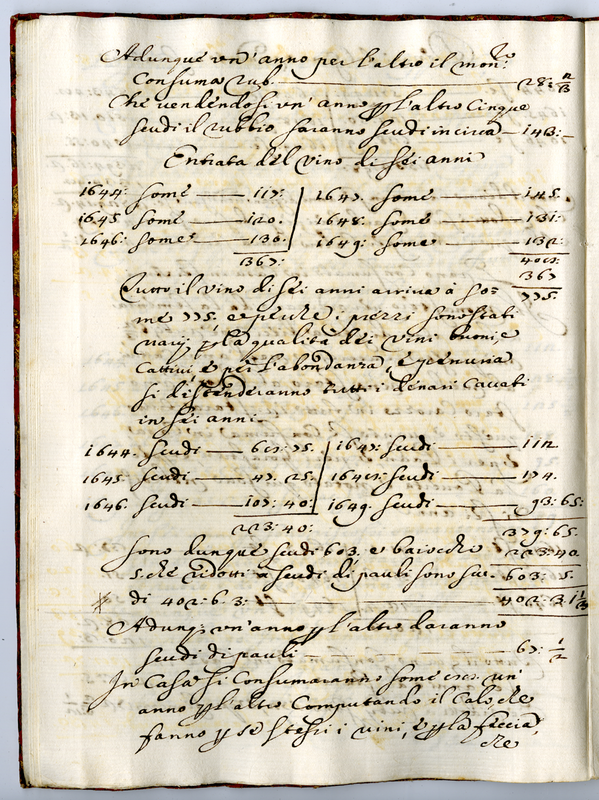 Adunque un' anno per l'altro il mon.ro
Consuma rub. — 28: 2/3
Che vendendosi un' anno p l'altro Cinque
scudi il rubbio saranno scudi in circa — 143:
Entrata del vino di sei anni
1644: some — 117: 1647: some — 145.
1645 some — 120. 1648: some — 131:
1646: some — 130: 1649: some — 132:
367: 408:
367
Tutto il vino di sei anni arriva à so= 775.
me 775. e perche i prezzi sono stati
varij p la qualità dei vini buoni e
Cattivi e per l'abondanza, e penuria
si distenderanno tutti i denari cavati
in sei anni
1644: scudi — 68: 75. 1647: scudi — 112.
1645: scudi — 47. 25. 1648: scudi — 174.
1646. scudi — 107: 40: 1649. scudi — 93: 65:
223: 40: 379: 65.
sono dunque scudi 603. e baiocchi 223: 40.
5. che ridotti a scudi di pauli sono scu- 603: 5.
di 402: 6. 3: — 402: 3 1/2
Adunq; un' anno p l'altro daranno
scudi di pauli — 67: 1/2
In Casa si Consumaranno some un'
anno p l'altro Computando il Calo che
fanno p se stessi i vini, e p la feccia,
che